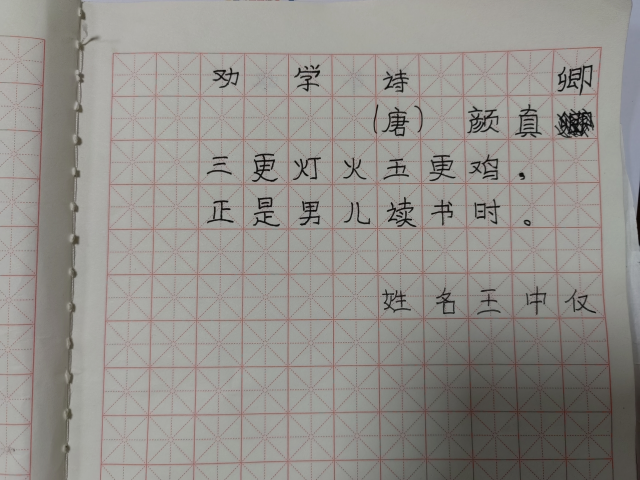 劝学诗
(唐) 颜真卿
三更灯火五更鸡，
正是男儿读书时。
姓名王中仅